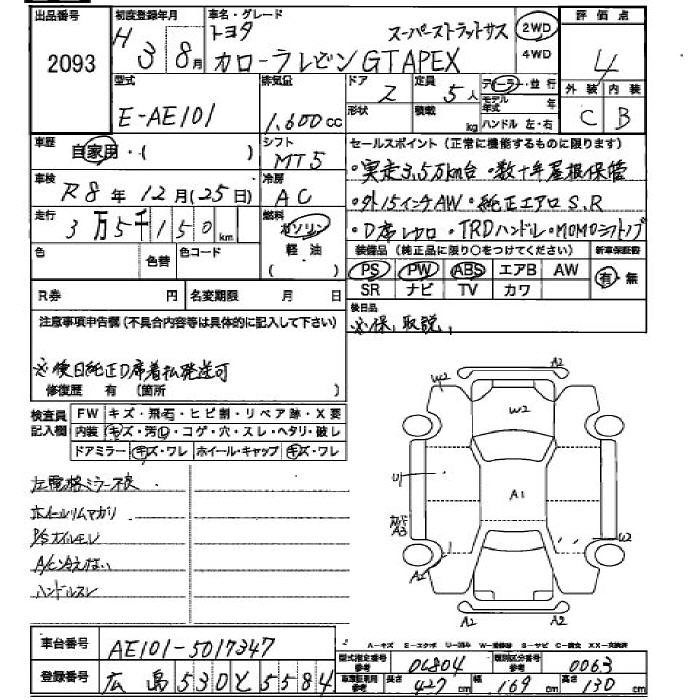 出品番号 初度登録年月 車名・グレード 評価点
2093
H 3 8月
トヨタ スーパーストラットサス
カローラレビン GT APEX
2WD
4WD
4
型式 排気量 ドア 定員 ディーラー・並行 外装 内装
E-AE101 1,600cc 2 5人 モデル年式 年 C B
形状 積載 kg ハンドル 左・右
車歴 自家用・( ) シフト MT5
セールスポイント(正常に機能するものに限ります)
・実走3.5万km台・数十年屋根保管
・外15インチAW・純正エアロ S,R
・D席レカロ・TRDハンドル・MOMOシフトノブ
車検 R8年12月(25日) 冷房 AC
走行 3万5千150km 燃料 ガソリン・軽油 ( )
色 色替 色コード
装備品(純正品に限り○をつけてください) 新車保証書
PS PW ABS エアB AW 有・無
SR ナビ TV カワ
R券 円 名変期限 月 日
後日品
※保,取説,
注意事項申告欄(不具合内容等は具体的に記入して下さい)
※後日純正D席着払発送可
修復歴 有 (箇所 )
検査員記入欄
FW キズ・飛石・ヒビ割・リペア跡・X要
内装 キズ・汚れ・コゲ・穴・スレ・ヘタリ・破レ
ドアミラー キズ・ワレ ホイール・キャップ キズ・ワレ
左電格ミラー不良
ホイールリムマガリ
P/Sオイルモレ
A/Cひえない
ハンドルスレ
A2
W2
W2
U1
A1
A3
W2
A2
A2 A2
A-キズ E-エクボ U-凹み W-補修跡 S-サビ C-腐食 XX-交換済
車台番号 AE101-5017347
登録番号 広島530と5584
型式指定番号 参考 06804 類別区分番号 参考 0063
車検証明用 参考 長さ 427cm 幅 169cm 高さ 130cm